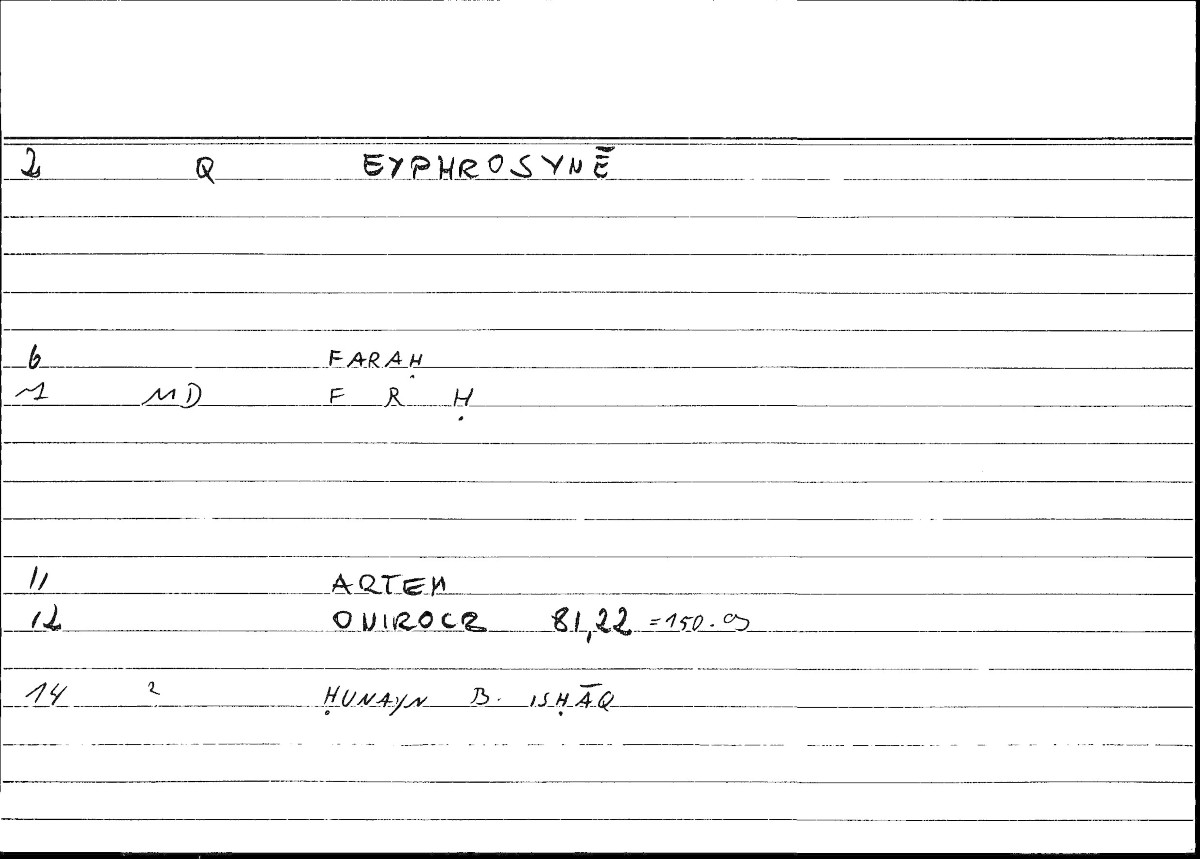 2 Q EYPHROSYNĒ
6 FARAḤ
1 MD F R Ḥ
11 ARTEM
12 ONIROCR 81,22 =150.
14 2 ḤUNAYN B. ISḤĀQ